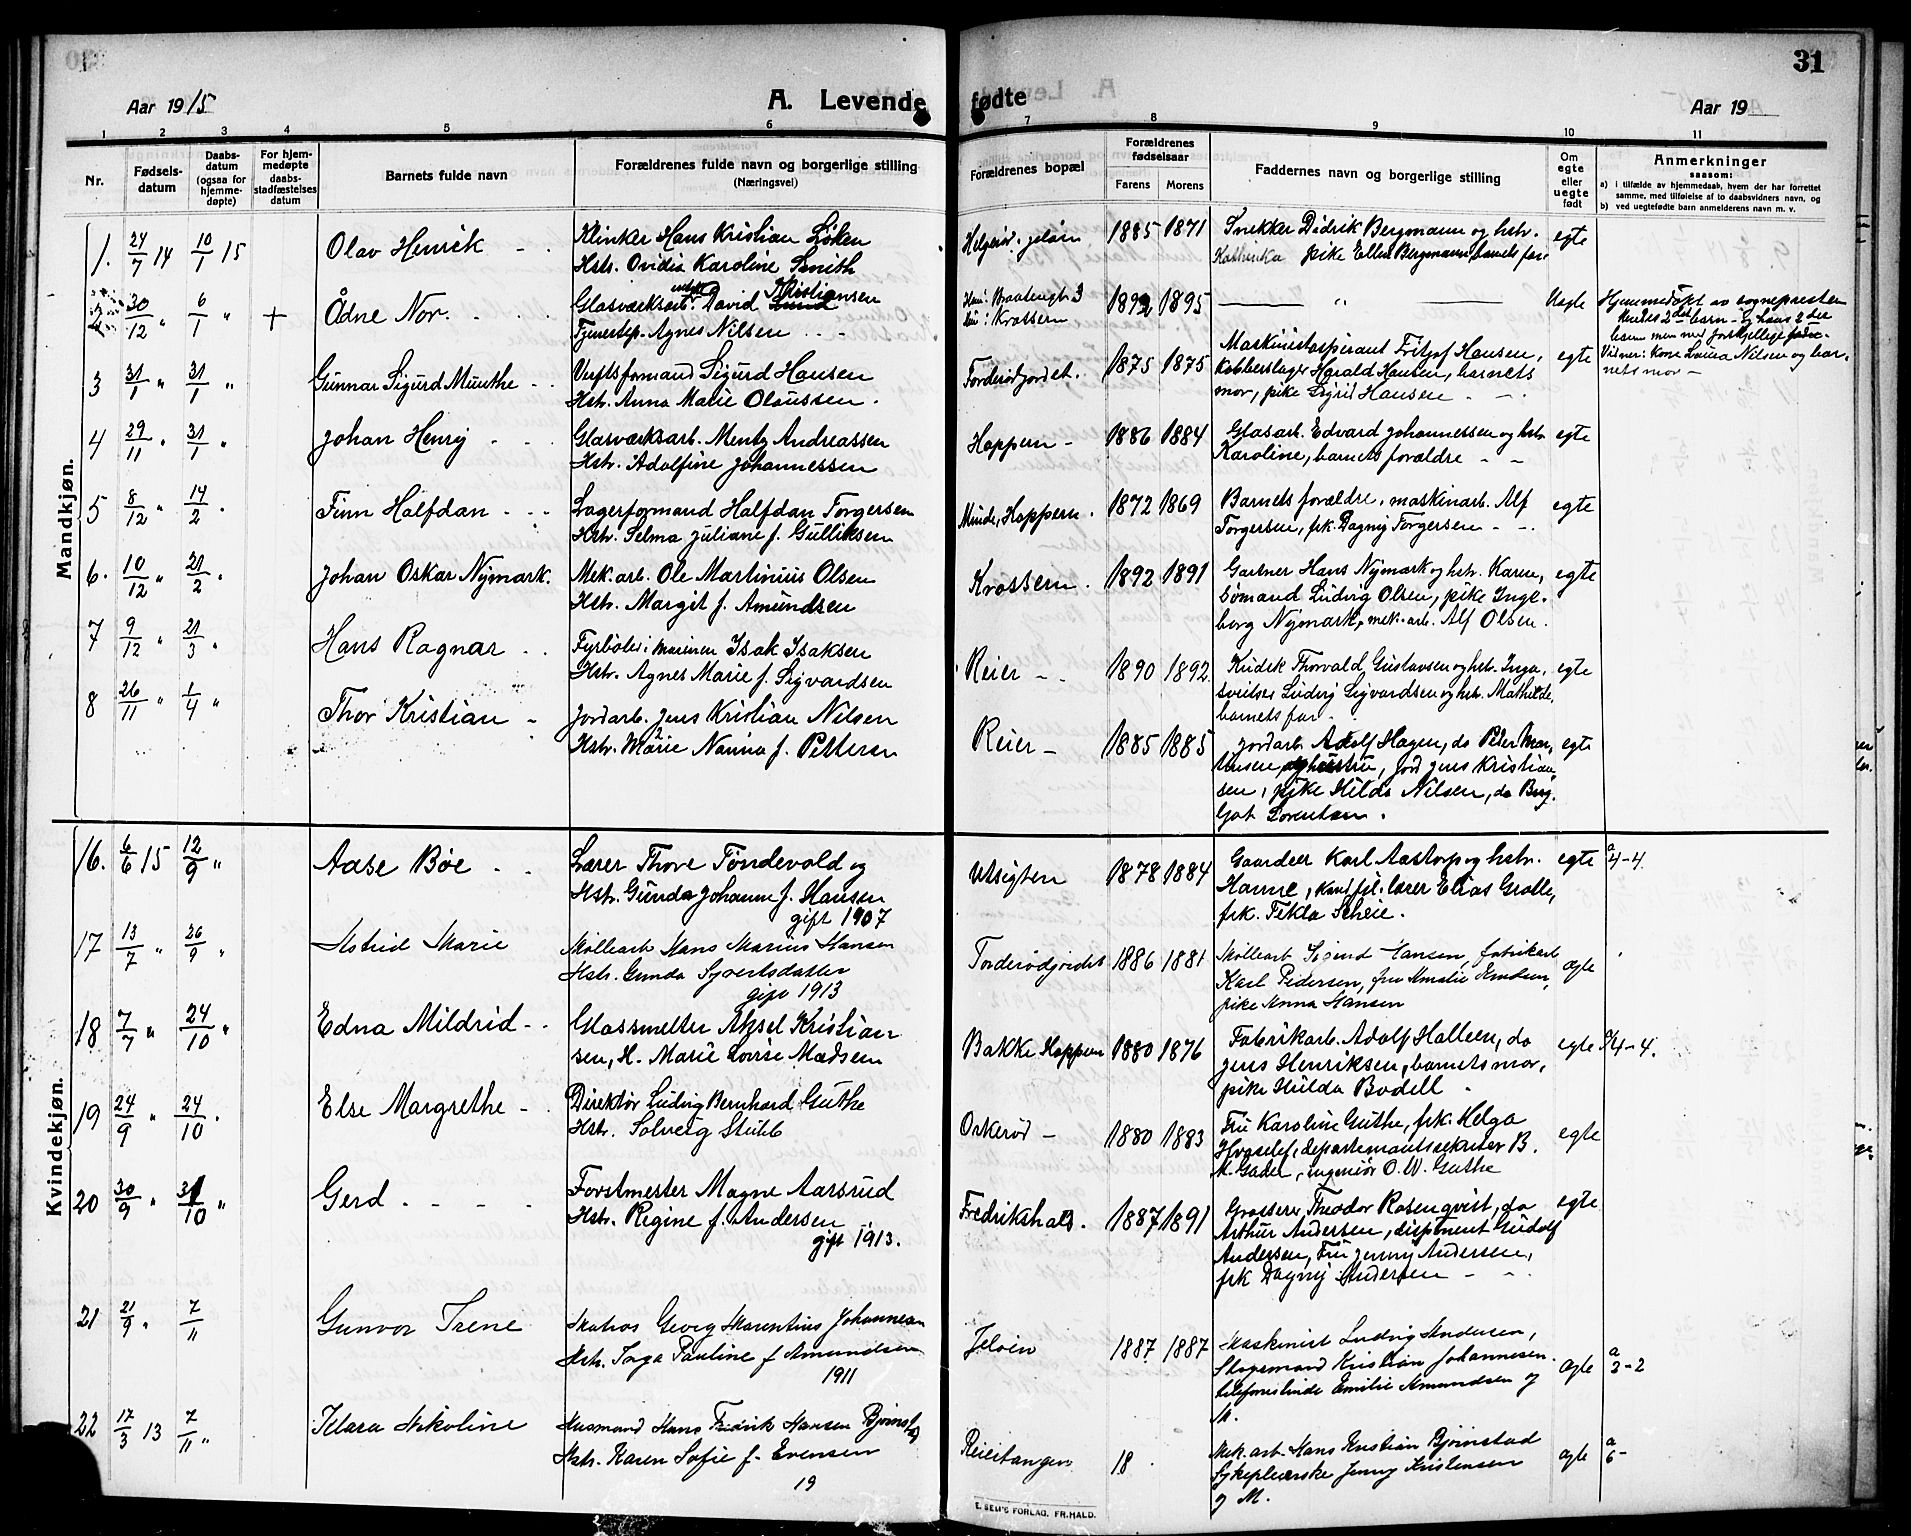 31
Aar 1915
A. Levende fødte
Aar 19
1 2 3 4 5 6 7 8 9 10 11
Nr.
Fødsels-
datum
Daabs-
datum
(ogsaa for
hjemme-
døpte)
For hjem-
medøpte
daabs-
stadfæstelses
datum
Barnets fulde navn
Forældrenes fulde navn og borgerlige stilling
(Næringsvei)
Forældrenes bopæl
Forældrenes
fødselsaar
Farens Morens
Faddernes navn og borgerlige stilling
Om
egte
eller
uegte
født
Anmerkninger
saasom:
a) i tilfælde av hjemmedaab, hvem der har forrettet
samme, med tilføielse af to daabsvidners navn, og
b) ved uegtefødte barn anmelderens navn m. v.
Mandkjøn.
1. 24/7 14 10/1 15 Olav Henrik
Klinker Hans Kristian Løken
Hstr. Ovidia Karoline Smith
Helgerød, Jeløen 1885 1871
Snekker Didrik Bergmann og hstr.
Kathinka pike Ellen Bergmann, barnets far
egte
2 30/12 " 6/1 " + Ådne Nor.
Glasværksarb. ugift David Kristiansen
Tjenestep. Agnes Nilsen
Han: Braatengt 3
Hun: Krossern
1892 1895
— " —
Uegte
Hjemmedøpt av sognepresten
Hendes 2det barn - og hans 2det
barn men med forskjellige fædre.
Vidner: Kone Laura Nilsen og bar-
nets mor -
3 31/1 " 31/1 " Gunnar Sigurd Munthe
Verftsformand Sigurd Hansen
Hstr. Anna Marie Olaussen.
Torderødjordet. 1875 1875
Maskinistaspirant Fritjof Hansen,
Kobberslager Harald Hansen, barnets
mor, pike Sigrid Hansen
egte
4 29/11 " 31/1 " Johan Henry
Glasværksarb. Mentz Andreassen
Hstr. Adolfine Johannessen
Hoppern - 1886 1884
Glasarb. Edvard Johannessen og hstr
Karoline, barnets forældre
egte
5 8/12 " 14/2 " Finn Halfdan
Lagerformand Halfdan Torgersen
Hstr. Selma Juliane f. Gulliksen
Minde, Hoppern. 1872 1869
Barnets forældre, maskinarb. Alf
Torgersen, frk. Dagny Torgersen
egte
6. 10/12 " 21/2 " Johan Oskar Nymark.
Mek. arb. Ole Martinius Olsen
Hstr. Margit f. Amundsen
Krossern. 1892 1891
Gartner Hans Nymark og hstr. Karen,
Sømand Ludvig Olsen, pike Inge-
borg Nymark, mek. arb. Alf Olsen.
egte
7 9/12 " 21/3 " Hans Ragnar
Fyrbøter i marinen Isak Isaksen
Hstr. Agnes Marie f. Sigvardsen
Reier - 1890 1892
Kudsk Thorvald Gustavsen og hstr. Inga,
sveiser Ludvig Sigvardsen og hstr. Mathilde,
barnets far.
egte
8 26/11 " 1/4 " Thor Kristian
Jordarb. Jens Kristian Nilsen
Hstr. Marie Nanna f. Pettersen
Reier - 1885 1885
Jordarb. Adolf Hagen, do Peder Mar-
tinsen og hustru, jord Jens Kristian-
sen, pike Hilda Nilsen, do Borg-
hot Lorentsen.
egte
Kvindekjøn.
16. 6/6 15 12/9 " Aase Bøe
Lærer Thore Tøndevold og
Hstr. Gunda Johanne f. Hansen
gift 1907
Utsigten 1878 1884
Gaardeier Karl Aastorp og hstr.
Hanne, kand. fil. lærer Elias Grolle,
frk. Tekla Scheie.
egte a 4-4.
17 13/7 " 26/9 " Astrid Marie
Møllearb Hans Marius Hansen
Hstr. Gunda Syvertsdatter
gift 1913
Torderødjordet 1886 1881
Møllearb Sigurd Hansen, fabrikarb
Karl Pedersen, fru Amalie Knudsen,
pike Anna Hansen
egte
18 7/7 " 24/10 " Edna Mildrid
Glassmelter Aksel Kristian
sen, H. Marie Lovise Madsen
Bakke Hoppern 1880 1876
Fabrikarb. Adolf Halleen, do
Jens Henriksen, barnets mor,
pike Hulda Bodell
egte a/4-4.
19 24/9 " 24/10 " Else Margrethe
Direktør Ludvig Bernhard Guthe
Hstr. Solveig Stubb
Orkerød - 1880 1883
Fru Karoline Guthe, frk. Helga
departementssekretær B.
M. Gader, ingeniør O. W. Guthe
egte
20 30/9 " 31/10 " Gerd
Forstmester Magne Aarsrud
Hstr. Regine f. Andersen
gift 1913.
Fredrikshald. 1887 1891
Grosserer Theodor Rosenqvist, do
Arthur Andersen, disponent Gudolf
Andersen, Fru Jenny Andersen,
frk Dagny Andersen
egte
21 21/9 " 7/11 Gunvor Irene
Matros Georg Marentius Johannesen
Hstr. Inga Pauline f Amundsen
1911
Jeløen 1887 1887
Maskinist Ludvig Andersen,
Styrmand Kristian Johannesen
Emilie Amundsen og
M.
egte a 2-2
22 17/3 13 7/11 " Klara Nikoline
Husmand Hans Fredrik Hansen Bjørnstad
Hstr. Karen Sofie f. Evensen
19
Reiertangen 18
Mek. arb. Hans Kristian Bjørnstad
Sykepleierske Jenny Kristensen
og M.
egte a 6-
E. SEM'S FORLAG, FR.HALD.